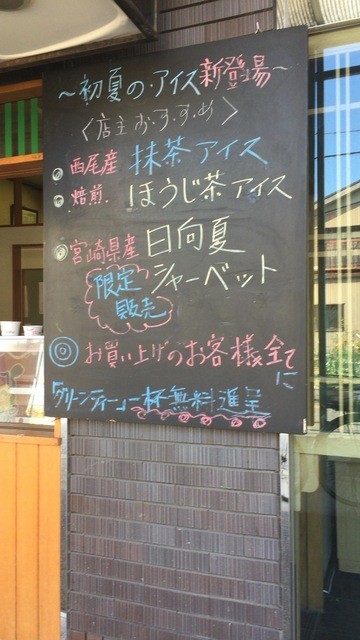 ～初夏の・アイス新登場～
＜店主おすすめ＞
西尾産 抹茶アイス
焙煎 ほうじ茶アイス
宮崎県産 日向夏
限定 シャーベット
販売
◎お買い上げのお客様全てに
グリーンティー一杯無料進呈